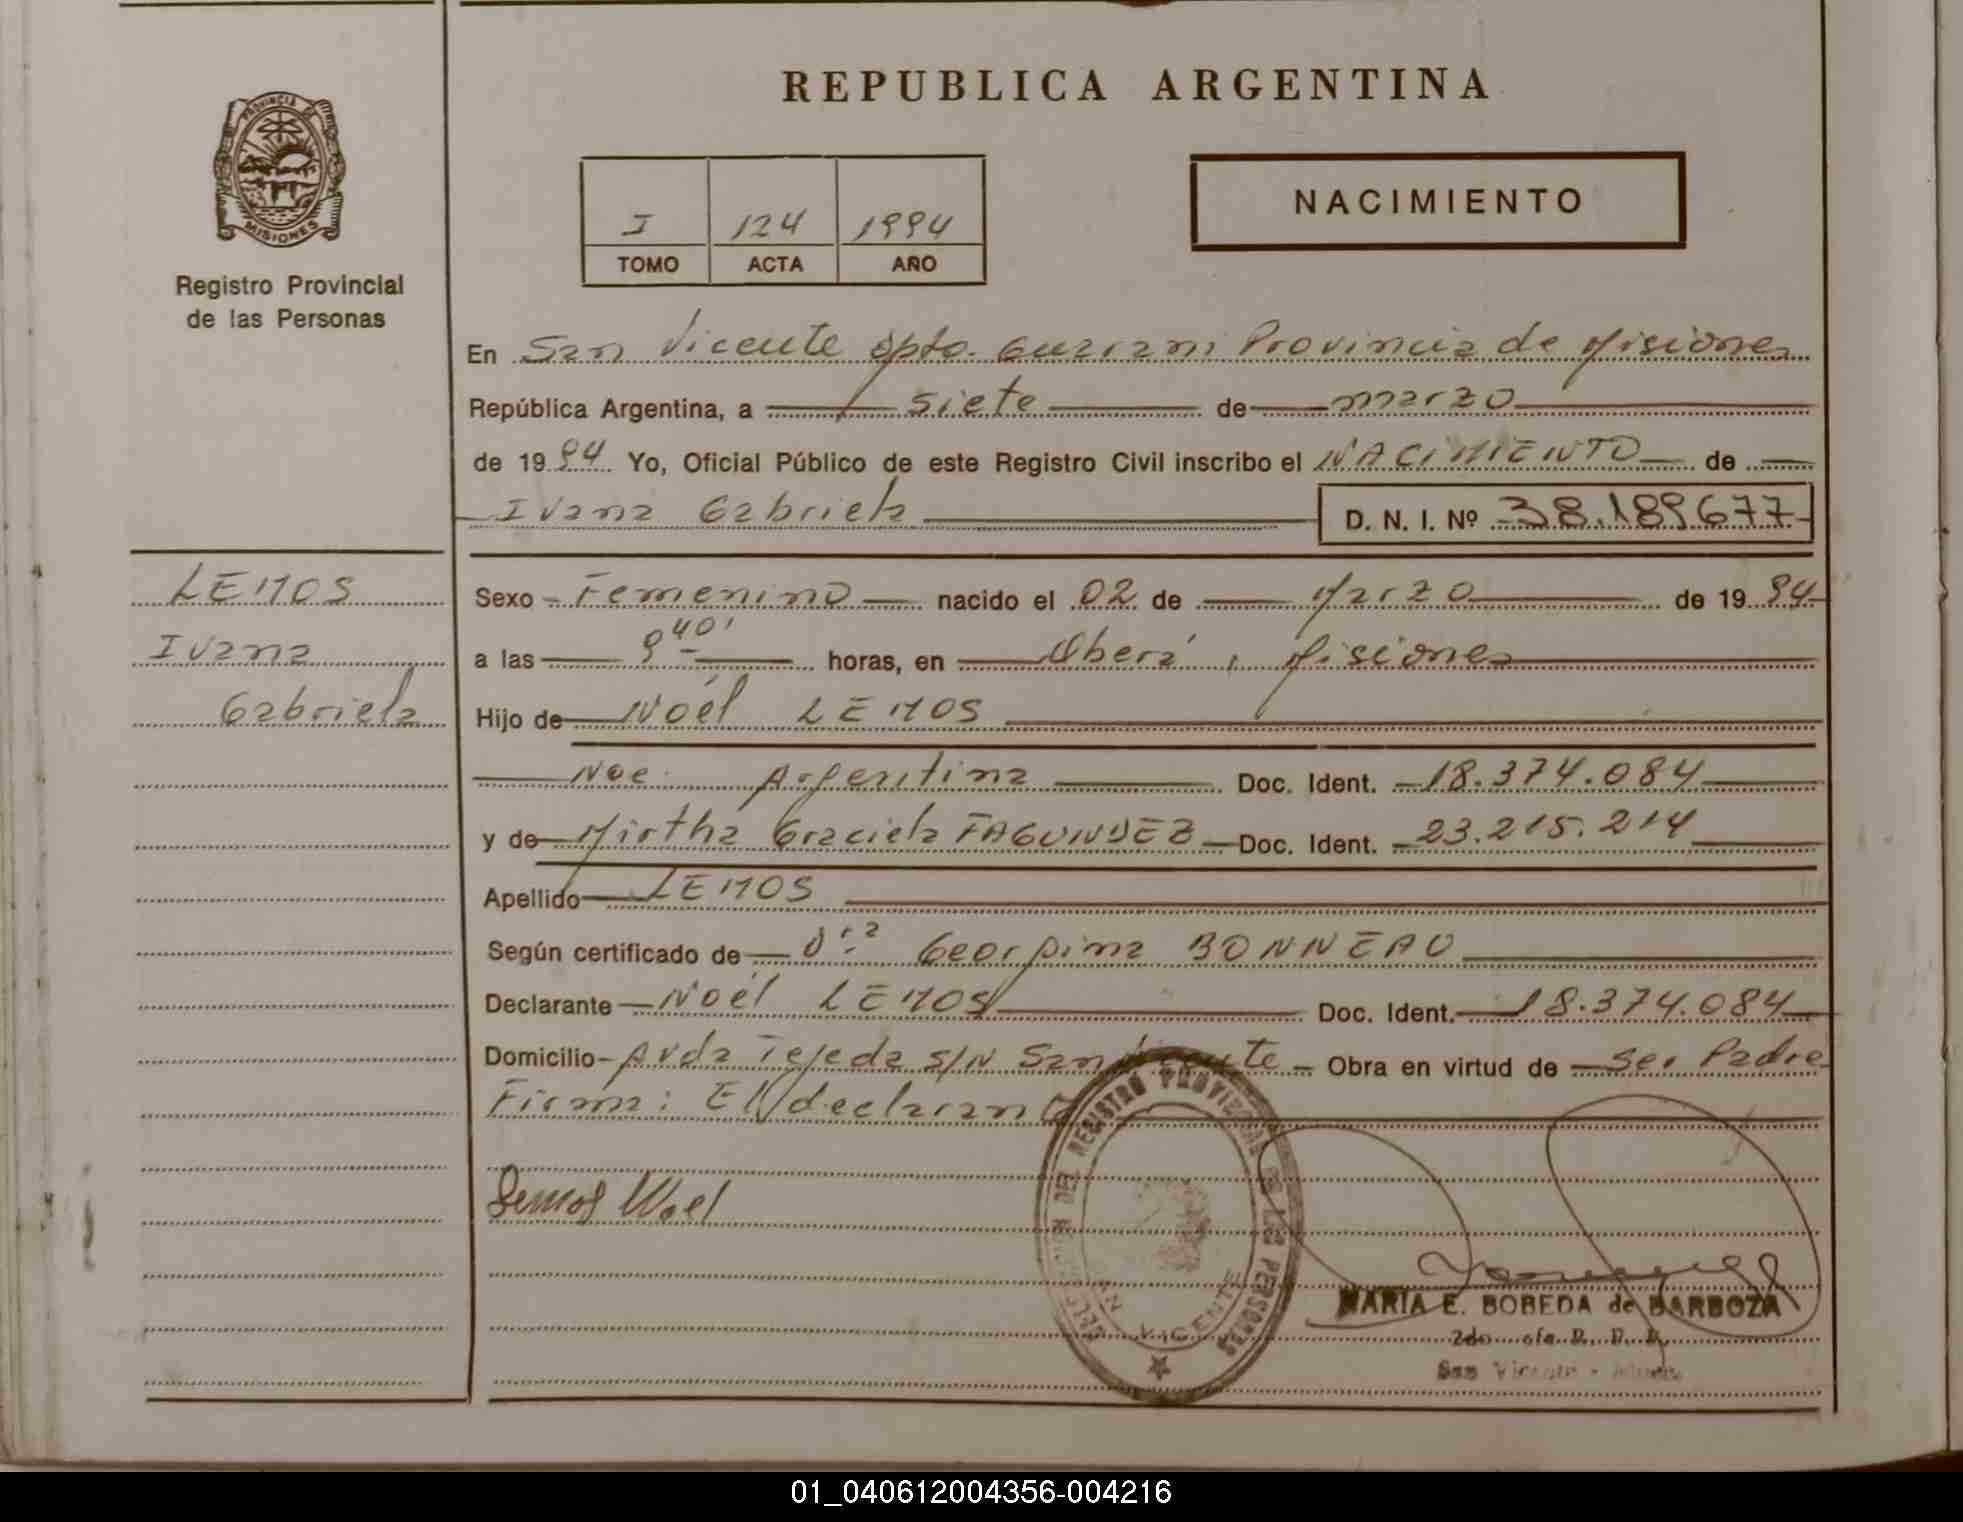 REPUBLICA ARGENTINA
PROVINCIA DE
MISIONES
Registro Provincial
de las Personas
I 124 1994
TOMO ACTA AÑO
NACIMIENTO
En San Vicente Dpto. Guarani Provincia de Misiones
República Argentina, a siete de marzo
de 1994 Yo, Oficial Público de este Registro Civil inscribo el NACIMIENTO de
Ivana Gabriela D. N. I. Nº 38.189677
LEMOS
Ivana
Gabriela
Sexo Femenino nacido el 02 de Marzo de 1994
a las 9 40' horas, en Oberá, Misiones
Hijo de Noél LEMOS
Nac. Argentina Doc. Ident. 18.374.084
y de Mirtha Graciela FAGUNDEZ Doc. Ident. 23.215.214
Apellido LEMOS
Según certificado de Dra Georgina BONNEAU
Declarante Noél LEMOS Doc. Ident. 18.374.084
Domicilio Avda Tejeda S/N San Vicente Obra en virtud de Ser Padre
Firma: El declarante
Lemos Noel
DEL REGISTRO PROVINCIAL DE LAS PERSONAS
SAN VICENTE
MARIA E. BOBEDA de BARBOZA
2do
San Vicente -
01_040612004356-004216